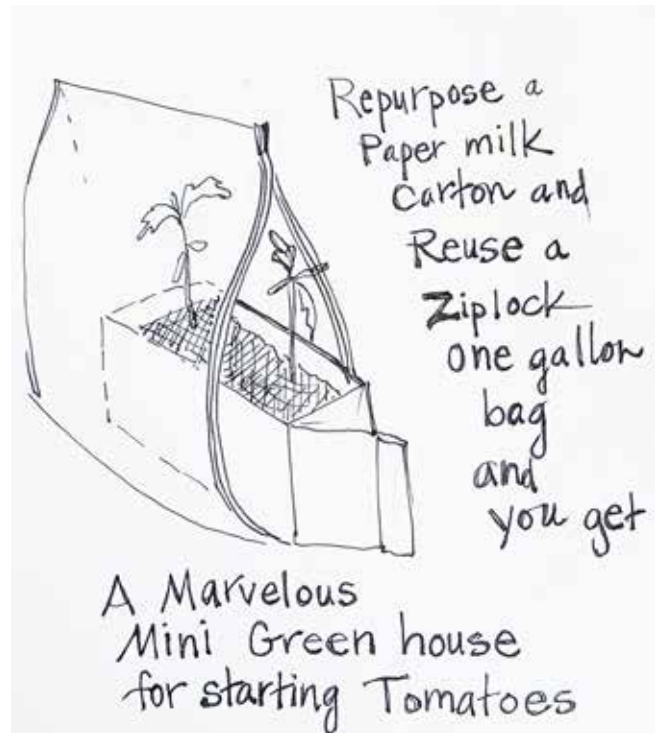 Repurpose a
Paper milk
carton and
Reuse a
Ziplock
one gallon
bag
and
you get
A Marvelous
Mini Green house
for starting Tomatoes